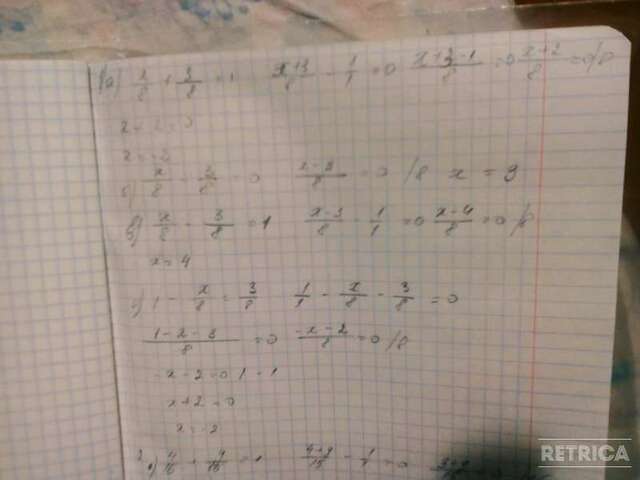 а) x/8 + 3/8 = 1 x+3/8 - 1/1 = 0 x+3-1/8 = 0 x+2/8 = 0 /8
x + 2 = 0
x = -2
б) x/8 - 3/8 = 0 x-3/8 = 0 /8 x = 3
в) x/8 - 3/8 = 1 x-3/8 - 1/1 = 0 x-4/8 = 0 /8
x = 4
г) 1 - x/8 = 3/8 1/1 - x/8 - 3/8 = 0
1-x-3/8 = 0 -x-2/8 = 0 /8
-x-2=0 /-1
x+2=0
x=-2
= 1 - 1/1 = 0
RETRICA